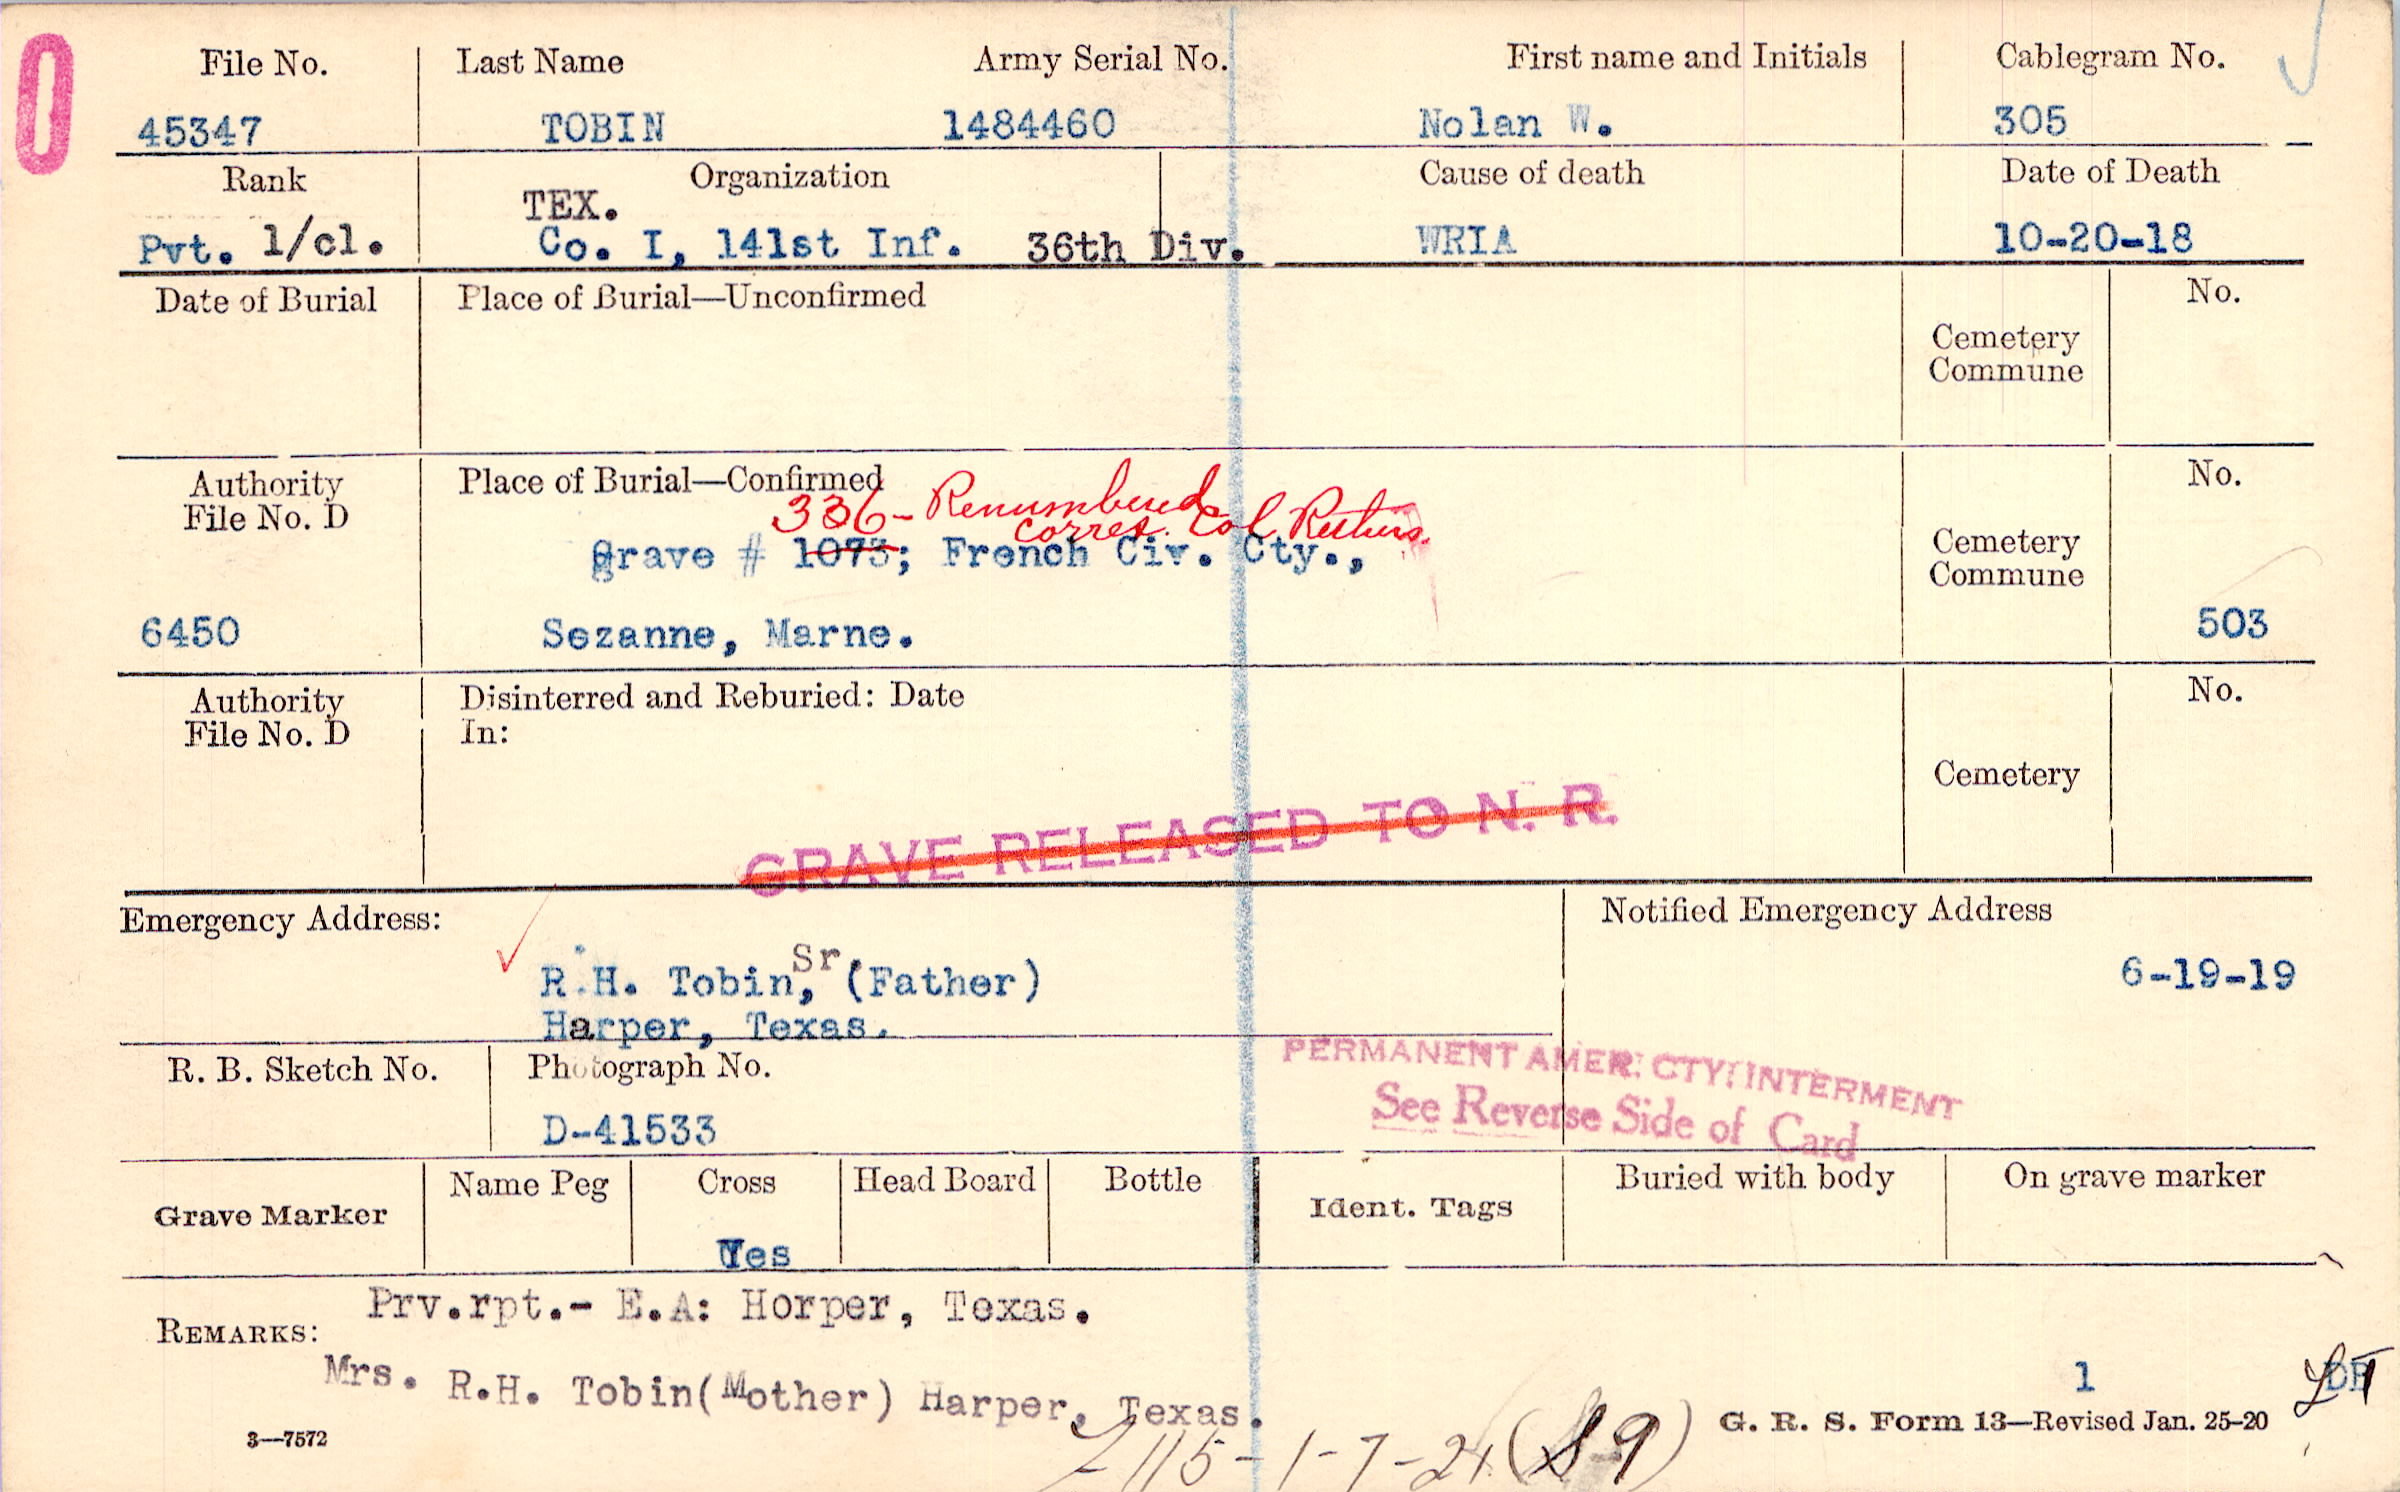 0
File No. Last Name Army Serial No. First name and Initials Cablegram No.
45347 TOBIN 1484460 Nolan W. 305
Rank Organization Cause of death Date of Death
TEX.
Pvt. 1/cl. Co. I, 141st Inf. 36th Div. WRIA 10-20-18
Date of Burial Place of Burial—Unconfirmed No.
Cemetery
Commune
Authority Place of Burial—Confirmed No.
File No. D
336- Renumbered
corres. Col
grave # 1073; French Civ. Cty.,
Cemetery
Commune
6450 Sezanne, Marne. 503
Authority Disinterred and Reburied: Date No.
File No. D In:
Cemetery
GRAVE RELEASED TO N. R.
Emergency Address: Notified Emergency Address
Sr.
R.H. Tobin, (Father) 6-19-19
Harper, Texas.
R. B. Sketch No. Photograph No.
PERMANENT AMER. CTY. INTERMENT
See Reverse Side of Card
D-41533
Name Peg Cross Head Board Bottle Buried with body On grave marker
Grave Marker Ident. Tags
Yes
Prv.rpt.- E.A: Horper, Texas.
REMARKS:
Mrs. R.H. Tobin(Mother) Harper, Texas.
1
G. R. S. Form 13—Revised Jan. 25-20
3—7572